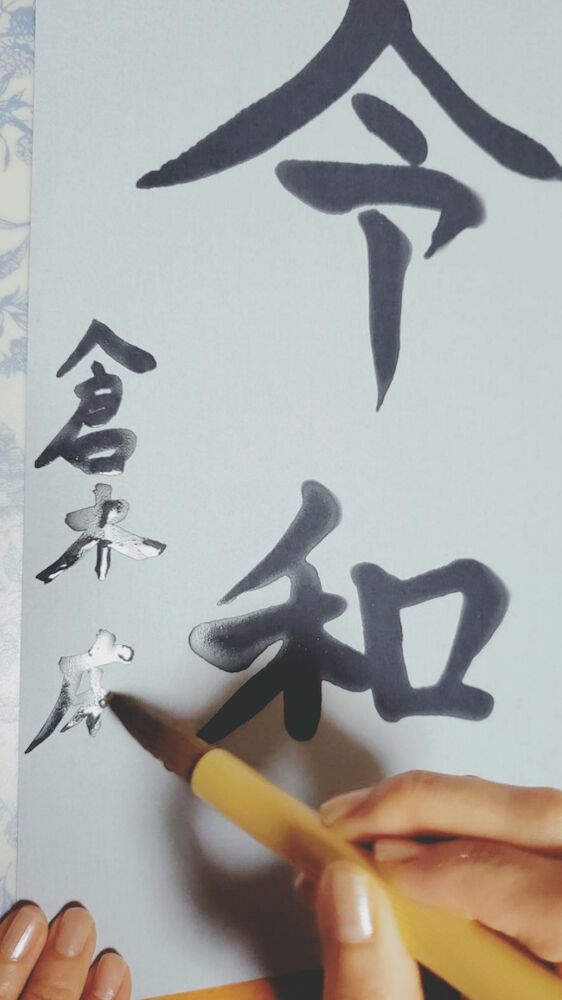 令和
倉木